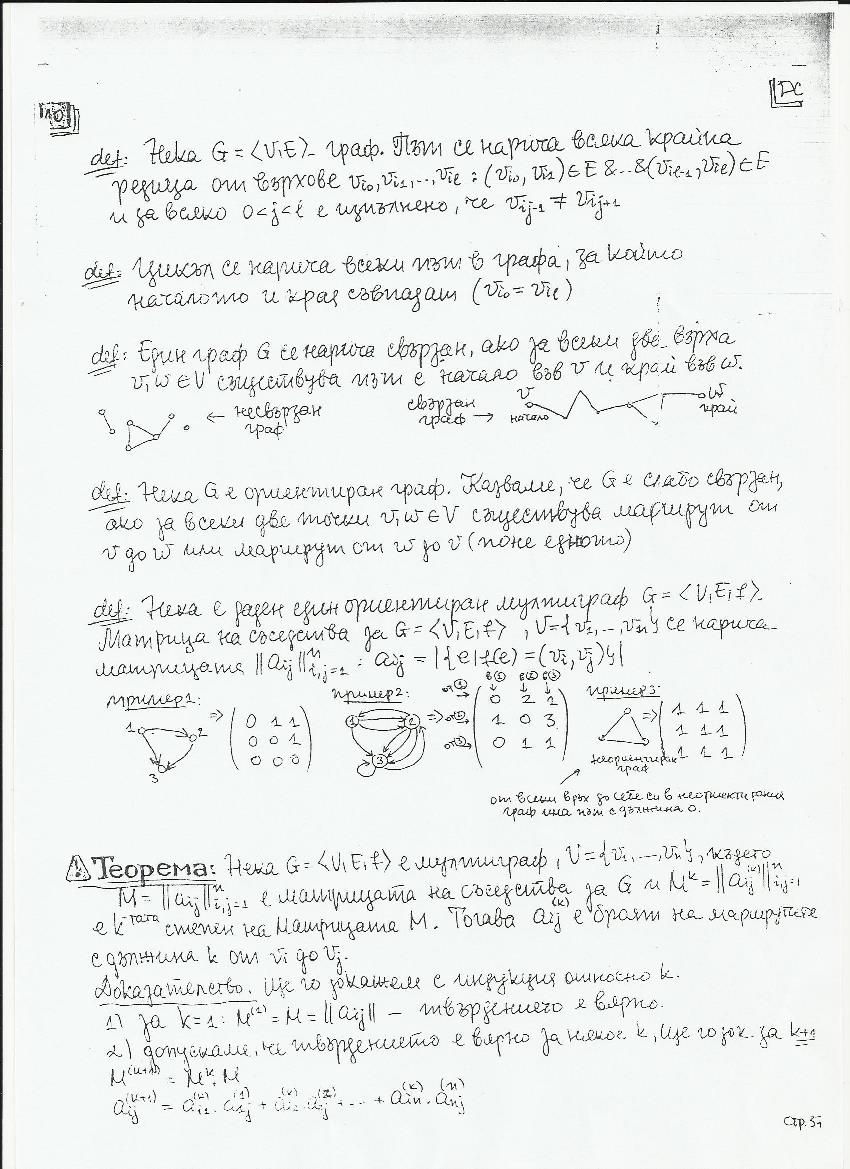 DC
def: Нека G = <V,E> - граф. Път се нарича всяка крайна
редица от върхове vi0, vi1, ..., vil : (vi0, vi1) ∈ E & ... & (vil-1, vil) ∈ E
и за всяко 0 < j < l е изпълнено, че vij-1 ≠ vij+1
def: Цикъл се нарича всеки път в графа, за който
началото и края съвпадат (vi0 = vil)
def: Един граф G се нарича свързан, ако за всеки два върха
v, w ∈ V съществува път с начало във v и край във w.
← несвързан
граф
свързан
граф →
v
начало
w
край
def: Нека G е ориентиран граф. Казваме, че G е слабо свързан,
ако за всеки две точки v, w ∈ V съществува маршрут от
v до w или маршрут от w до v (поне едното)
def: Нека е даден един ориентиран мултиграф G = <V, E, f>.
Матрица на съседства за G = <V, E, f>, V = {v1, ..., vn} се нарича
матрицата ||aij||ⁿi,j=1 : aij = |{e | f(e) = (vi, vj)}|
пример1:
1 2 3
=> ( 0 1 1
0 0 1
0 0 0 )
пример2:
1 2 3
=>
в① в② в③
от① → 0 2 1
от② → 1 0 3
от③ → 0 1 1
пример3:
=> ( 1 1 1
1 1 1
1 1 1 )
неориентиран
граф
от всеки връх до себе си в неориентирания
граф има път с дължина 0.
Теорема: Нека G = <V, E, f> е мултиграф, V = {v1, ..., vn}, където
M = ||aij||ⁿi,j=1 е матрицата на съседства за G и M^k = ||aij^(k)||ⁿi,j=1
е k-тата степен на матрицата M. Тогава aij^(k) е броят на маршрутите
с дължина k от vi до vj.
Доказателство. Ще го докажем с индукция относно k.
1) за k=1: M^(1) = M = ||aij|| – твърдението е вярно.
2) допускаме, че твърдението е вярно за някое k, ще го док. за k+1
M^(k+1) = M^k . M
aij^(k+1) = ai1^(k) . a1j^(1) + ai2^(k) . a2j^(1) + ... + ain^(k) . anj^(1)
Стр. 34